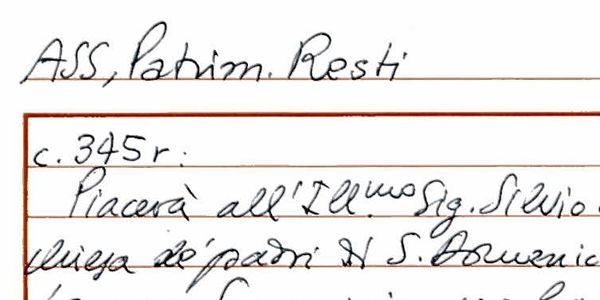 ASS, Patrim. Resti
c. 345 r:
Piacerà all'Ill.mo Sig. Silvio
chiesa de' padri di S. Domenic